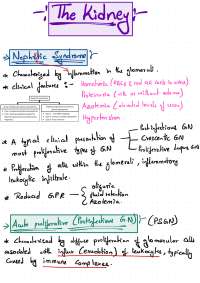 The Kidney
Nephritic Syndrome
* Characterized by inflammation in the glomeruli.
* Clinical features :- Hematuria (RBCs &
Proteinuria (with or without edema)
Azotemia (elevated levels of urea)
Hypertension
* A typical clinical presentation of
most proliferative types of GN
Postinfectious GN
Crescentic GN
Proliferative lupus GN
* Proliferation of cells within the glomeruli, inflammatory
leukocytic infiltrate.
* Reduced GFR
oliguria
fluid retention
Azotemia
Acute proliferative (Postinfectious GN) (PSGN)
* Characterised by diffuse proliferation of glomerular cells
associated with influx (exudation) of leukocytes, typically
caused by immune complexes.